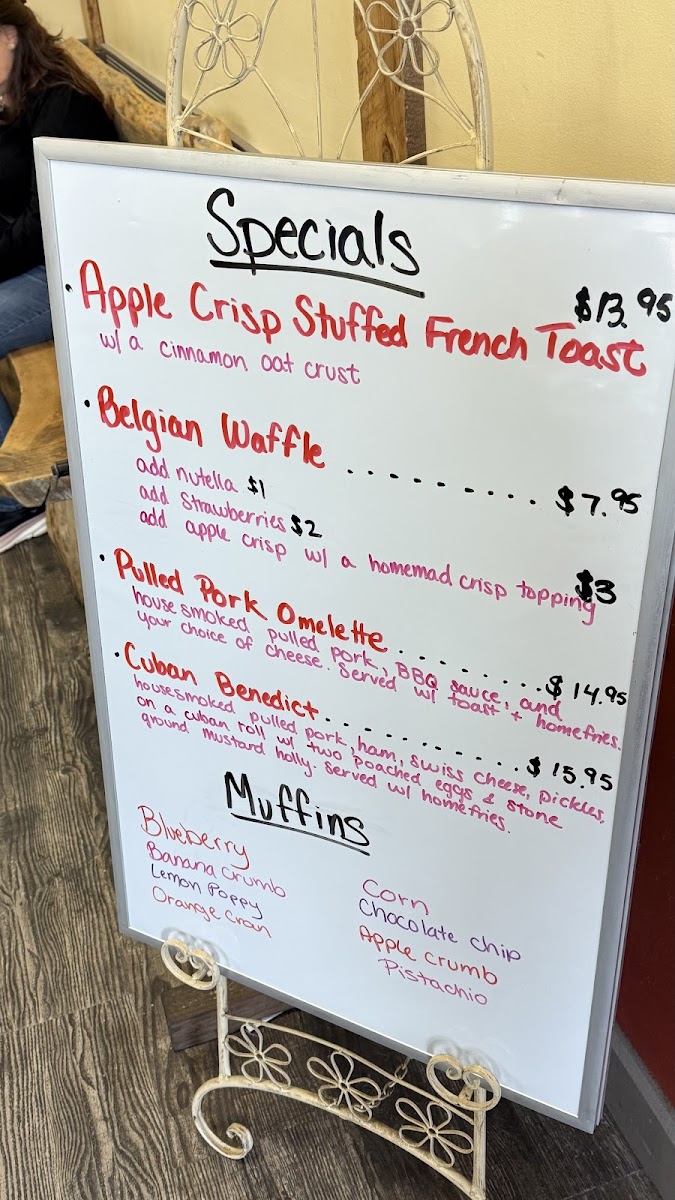 Specials
• Apple Crisp Stuffed French Toast $13.95
w/ a cinnamon oat crust
• Belgian Waffle .......... $7.95
add nutella $1
add strawberries $2
add apple crisp w/ a homemad crisp topping $3
• Pulled Pork Omelette ......... $14.95
house smoked pulled pork, BBQ sauce, and
your choice of cheese. Served w/ toast + homefries.
• Cuban Benedict ............ $15.95
housesmoked pulled pork, ham, swiss cheese, pickles,
on a cuban roll w/ two poached eggs & stone
ground mustard holly. Served w/ homefries.
Muffins
Blueberry
Banana crumb
Lemon Poppy
Orange cran
Corn
Chocolate chip
Apple crumb
Pistachio